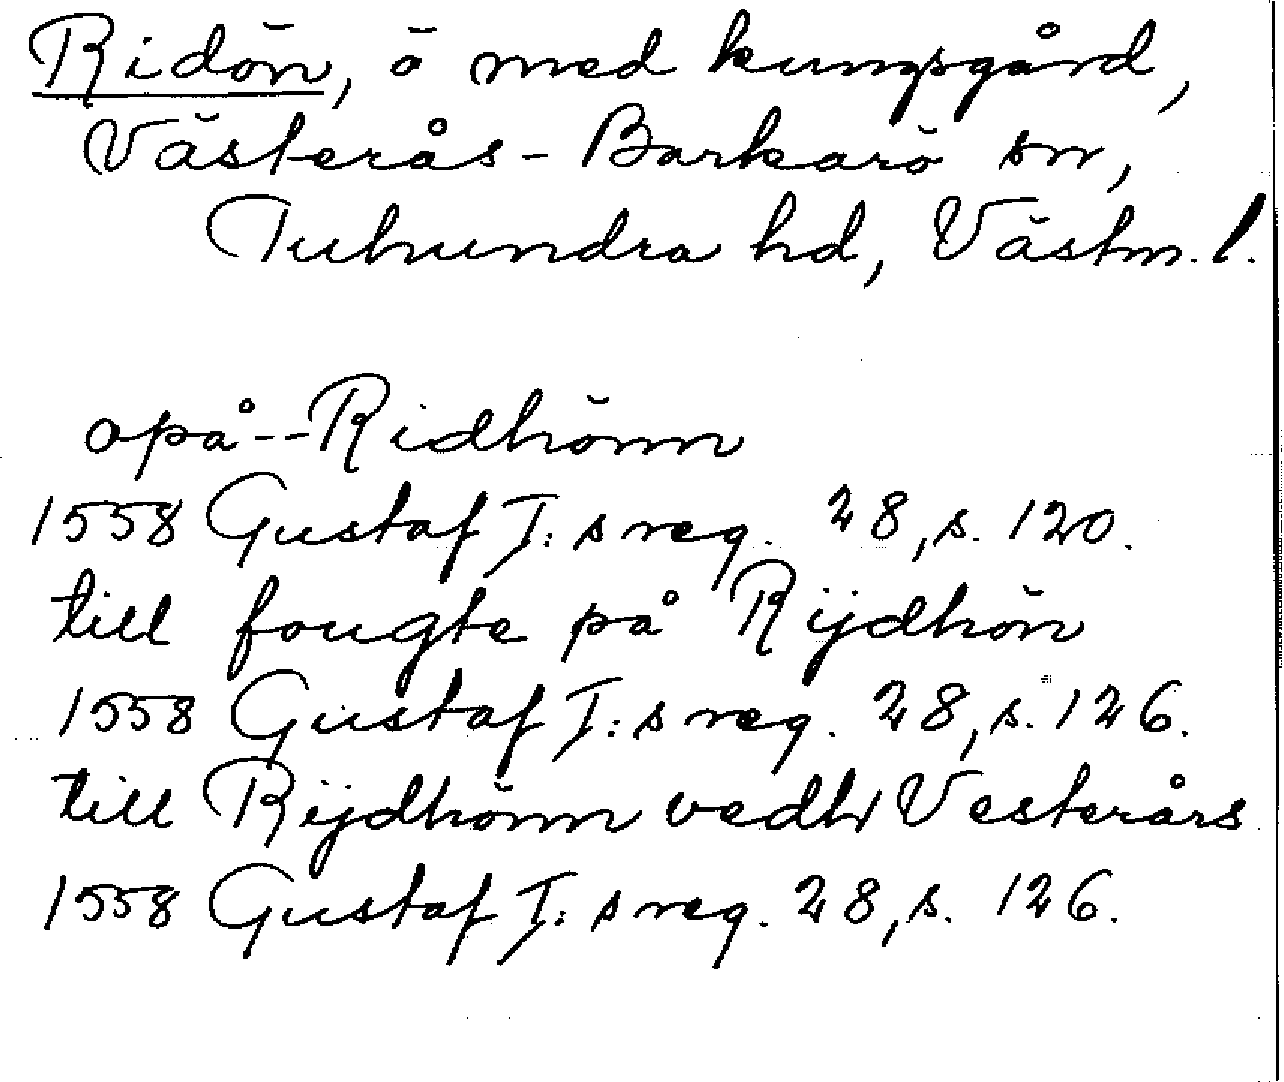 Ridön, ö med kungsgård,
Västerås-Barkarö sn,
Tuhundra hd, Västm. l.
opå--Ridhönn
1558 Gustaf I:s reg. 28, s. 120.
till fougte på Rijdhön
1558 Gustaf I:s reg. 28, s. 126.
till Rijdhönn vedh Vesterårs
1558 Gustaf I:s reg. 28, s. 126.